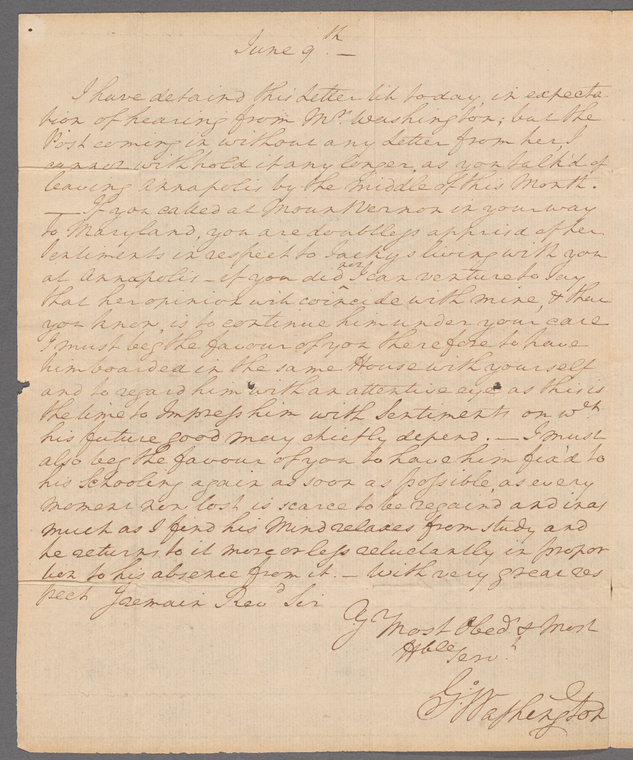 June 9th. —
I have detaind this Letter till today, in expecta-
tion of hearing from Mrs Washington; but the
Post coming in without any Letter from her, I
cannot withhold it any longer, as you talk'd of
leaving Annapolis by the Middle of this Month.
— If you called at Mount Vernon in your way
to Maryland, you are doubtless apprisd of her
Sentiments in respect to Jacky's living with you
at Annapolis — if you did not, I can venture to say
that her opinion will coincide with mine, & that
you know, is to continue him under your care
I must beg the favour of you therefore to have
him boarded in the same House with yourself
and to regard him with an attentive eye as this is
the time to Impress him with Sentiments on wch
his future good may chiefly depend. — I must
also beg the favour of you to have him fix'd to
his schooling again as soon as possible, as every
moment now lost is scarce to be regaind and inas
much as I find his Mind relaxes from study and
he returns to it more or less reluctantly in propor
tion to his absence from it. — With very great res
pect I remain Revd Sir
Yr Most Obedt & Most
Hble Servt
Go: Washington